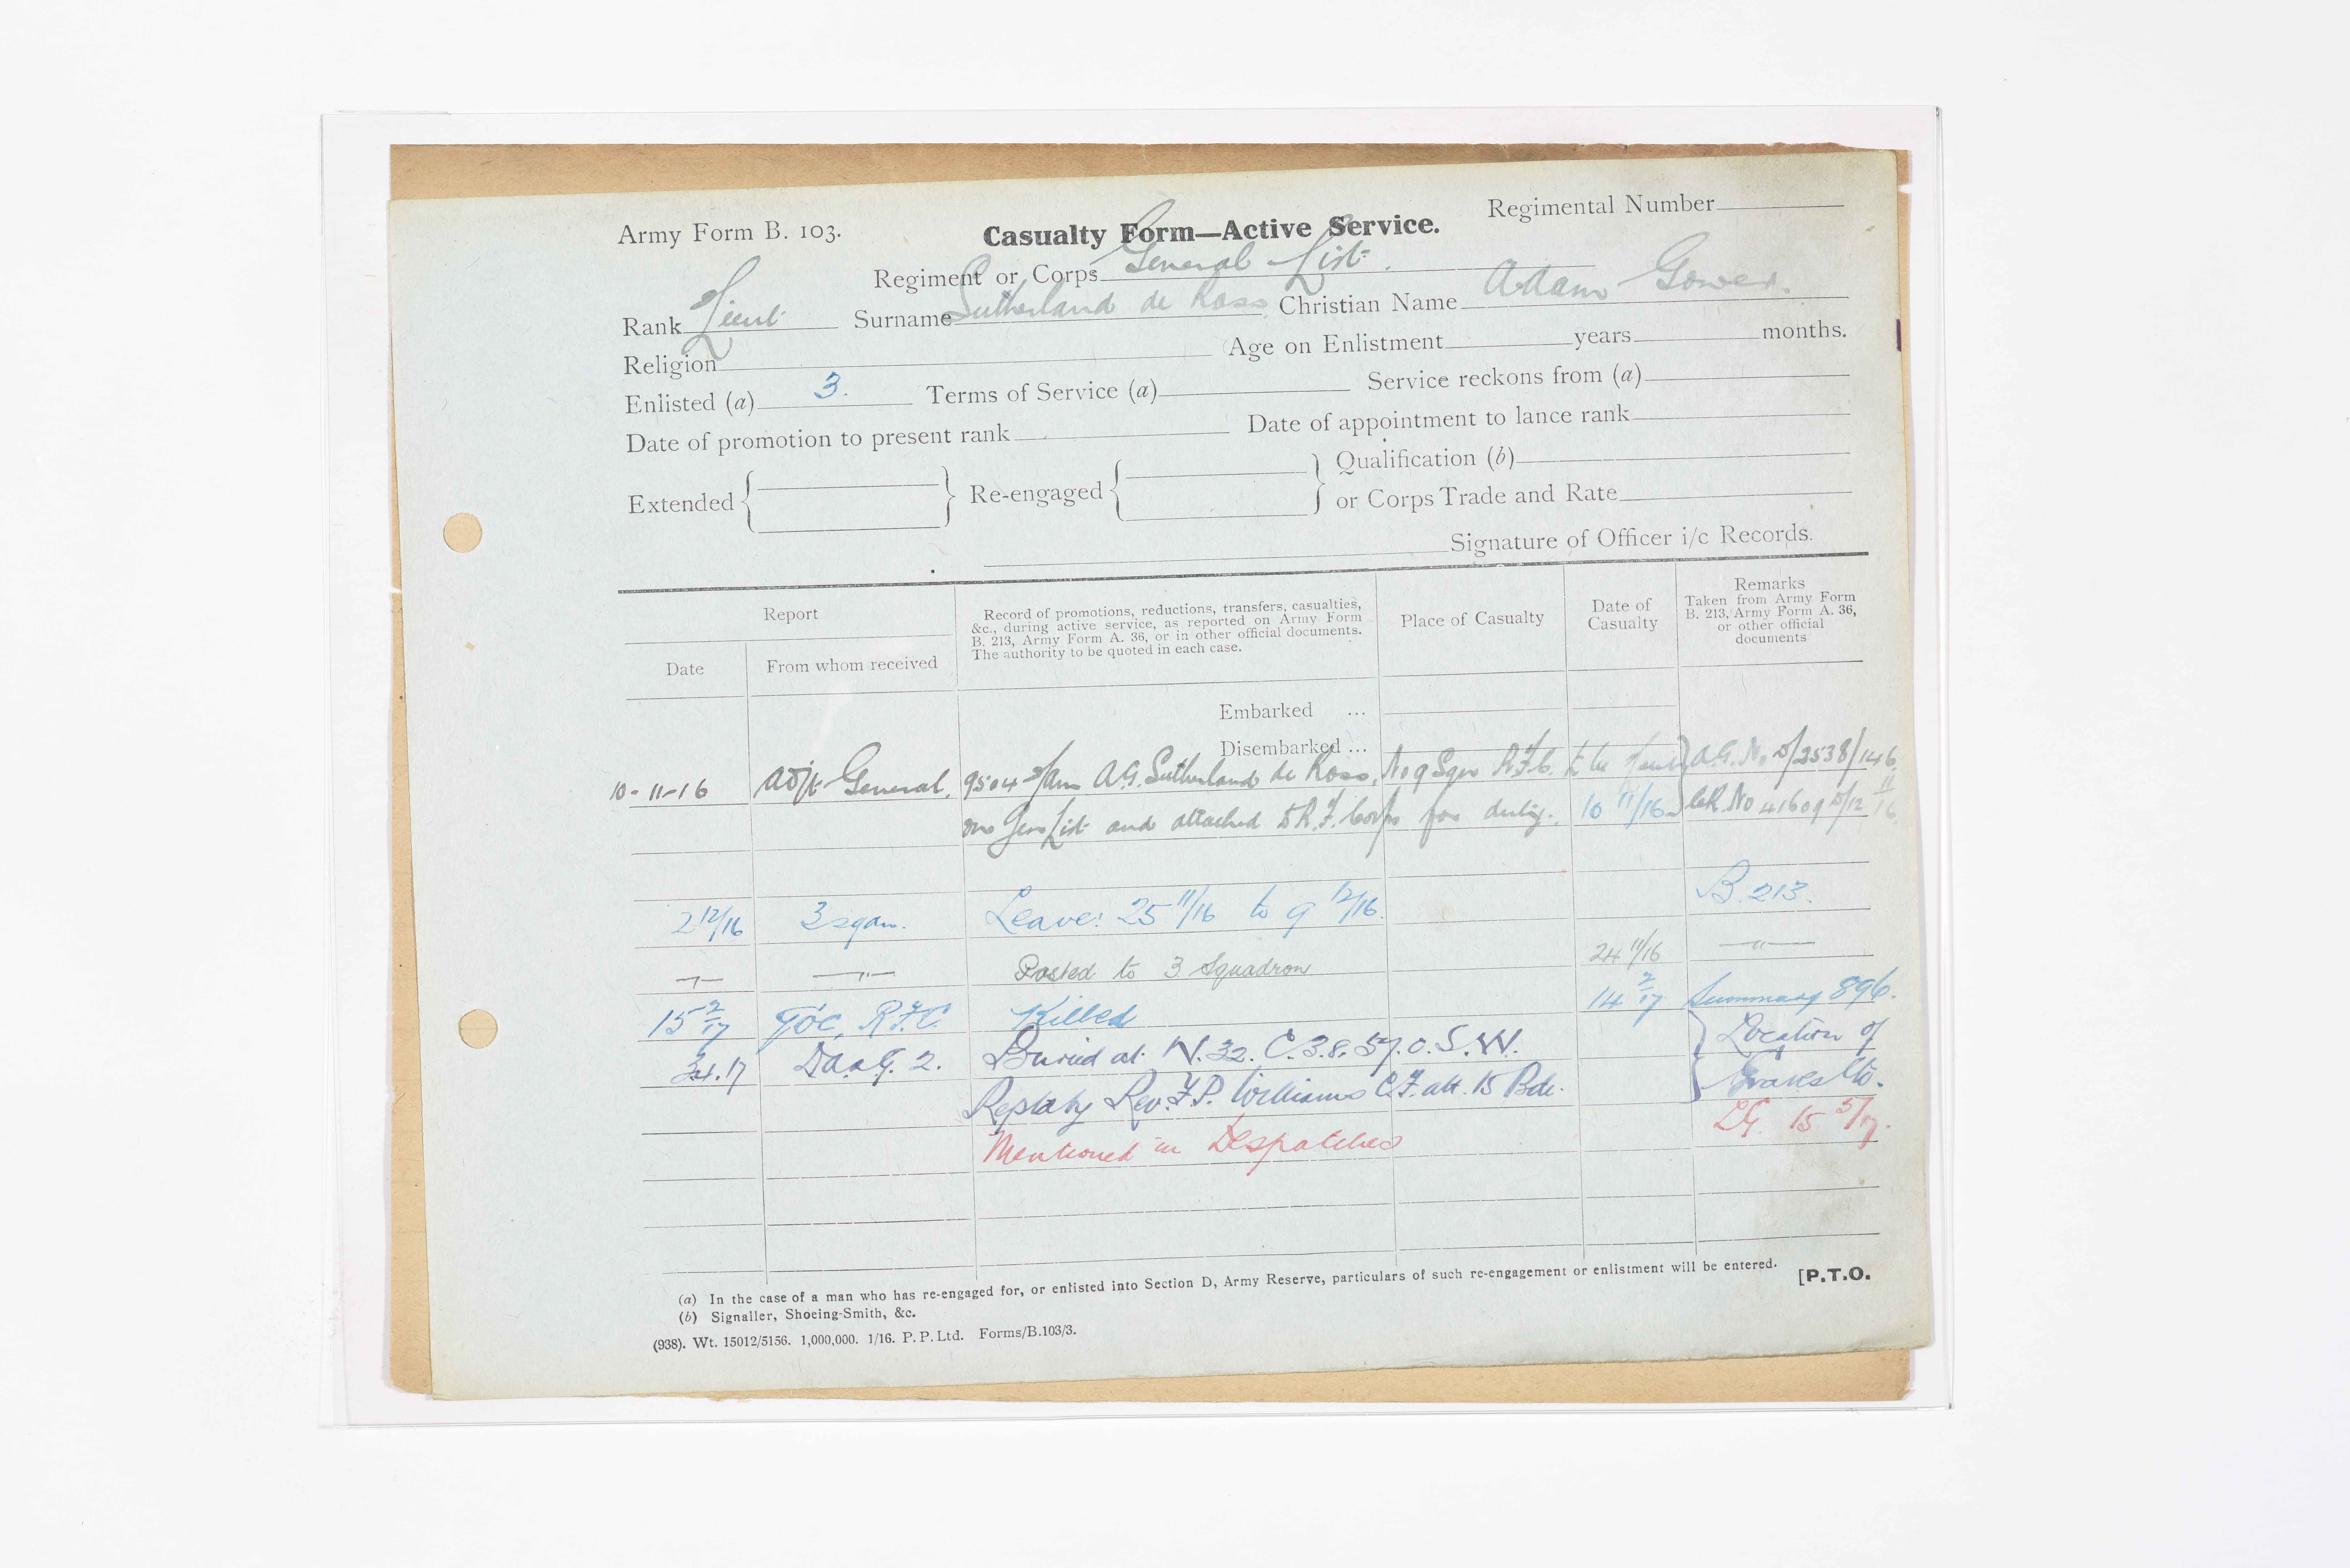 Regimental Number
Army Form B. 103.
Casualty Form—Active Service.
Regiment or Corps General List.
Rank 2/Lieut Surname Sutherland de Ross Christian Name Adam Gower.
Religion Age on Enlistment years months.
Enlisted (a) 3. Terms of Service (a) Service reckons from (a)
Date of promotion to present rank Date of appointment to lance rank
Extended { } Re-engaged { } Qualification (b)
or Corps Trade and Rate
Signature of Officer i/c Records.
Report
Date
From whom received
Record of promotions, reductions, transfers, casualties,
&c., during active service, as reported on Army Form
B. 213, Army Form A. 36, or in other official documents.
The authority to be quoted in each case.
Place of Casualty
Date of
Casualty
Remarks
Taken from Army Form
B. 213, Army Form A. 36,
or other official
documents
Embarked ...
Disembarked ...
10-11-16 Adjt General. 9504 2/Am A.G. Sutherland de Ross, No 9 Sqn R.F.C. to be } A.G. No D/2538/146
on Gen List and attached to R.F. Corps for duty. 10 11/16 } No 41609 D/12 11/16
2 12/16 3 sqdn. Leave: 25 11/16 to 9 12/16. B. 213.
—"— —"— Posted to 3 Squadron 24 11/16 —"—
15 2/17 GOC, R.F.C. Killed 14 2/17 Summary 896.
3.4.17 DaaG. 2. Buried at N. 32. C. 3.8. 57. c. S.W. } Location of
Rep by Rev. F.P. Williams C.F. att. 15 Bde. } Graves
Mentioned in Despatches LG. 15 5/17.
(a) In the case of a man who has re-engaged for, or enlisted into Section D, Army Reserve, particulars of such re-engagement or enlistment will be entered.
[P.T.O.
(b) Signaller, Shoeing-Smith, &c.
(938). Wt. 15012/5156. 1,000,000. 1/16. P. P. Ltd. Forms/B.103/3.